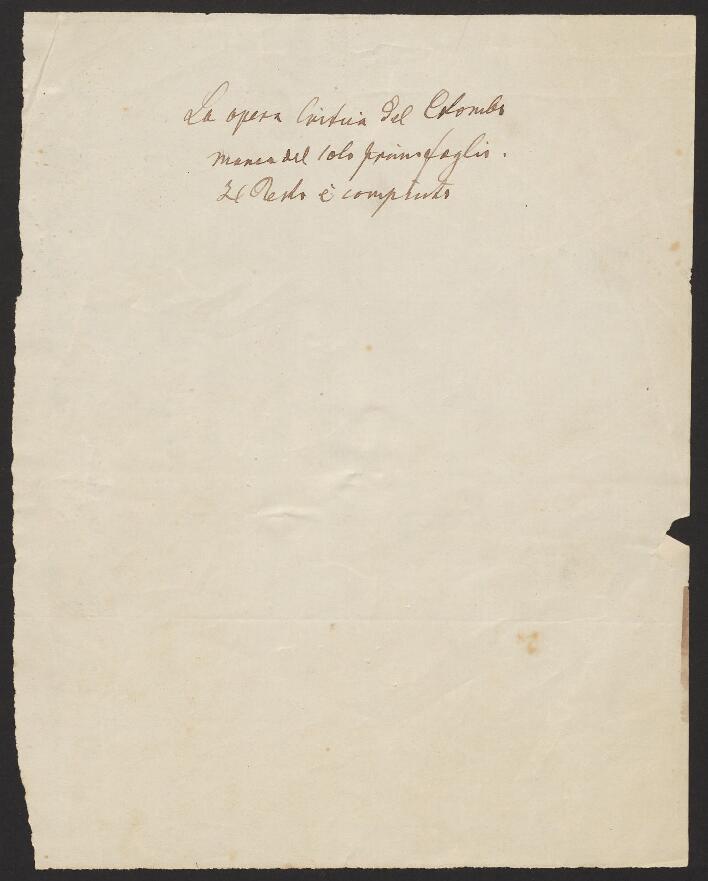 La opera Critica del Colombo
manca del solo primo foglio.
Il Resto è compiuto